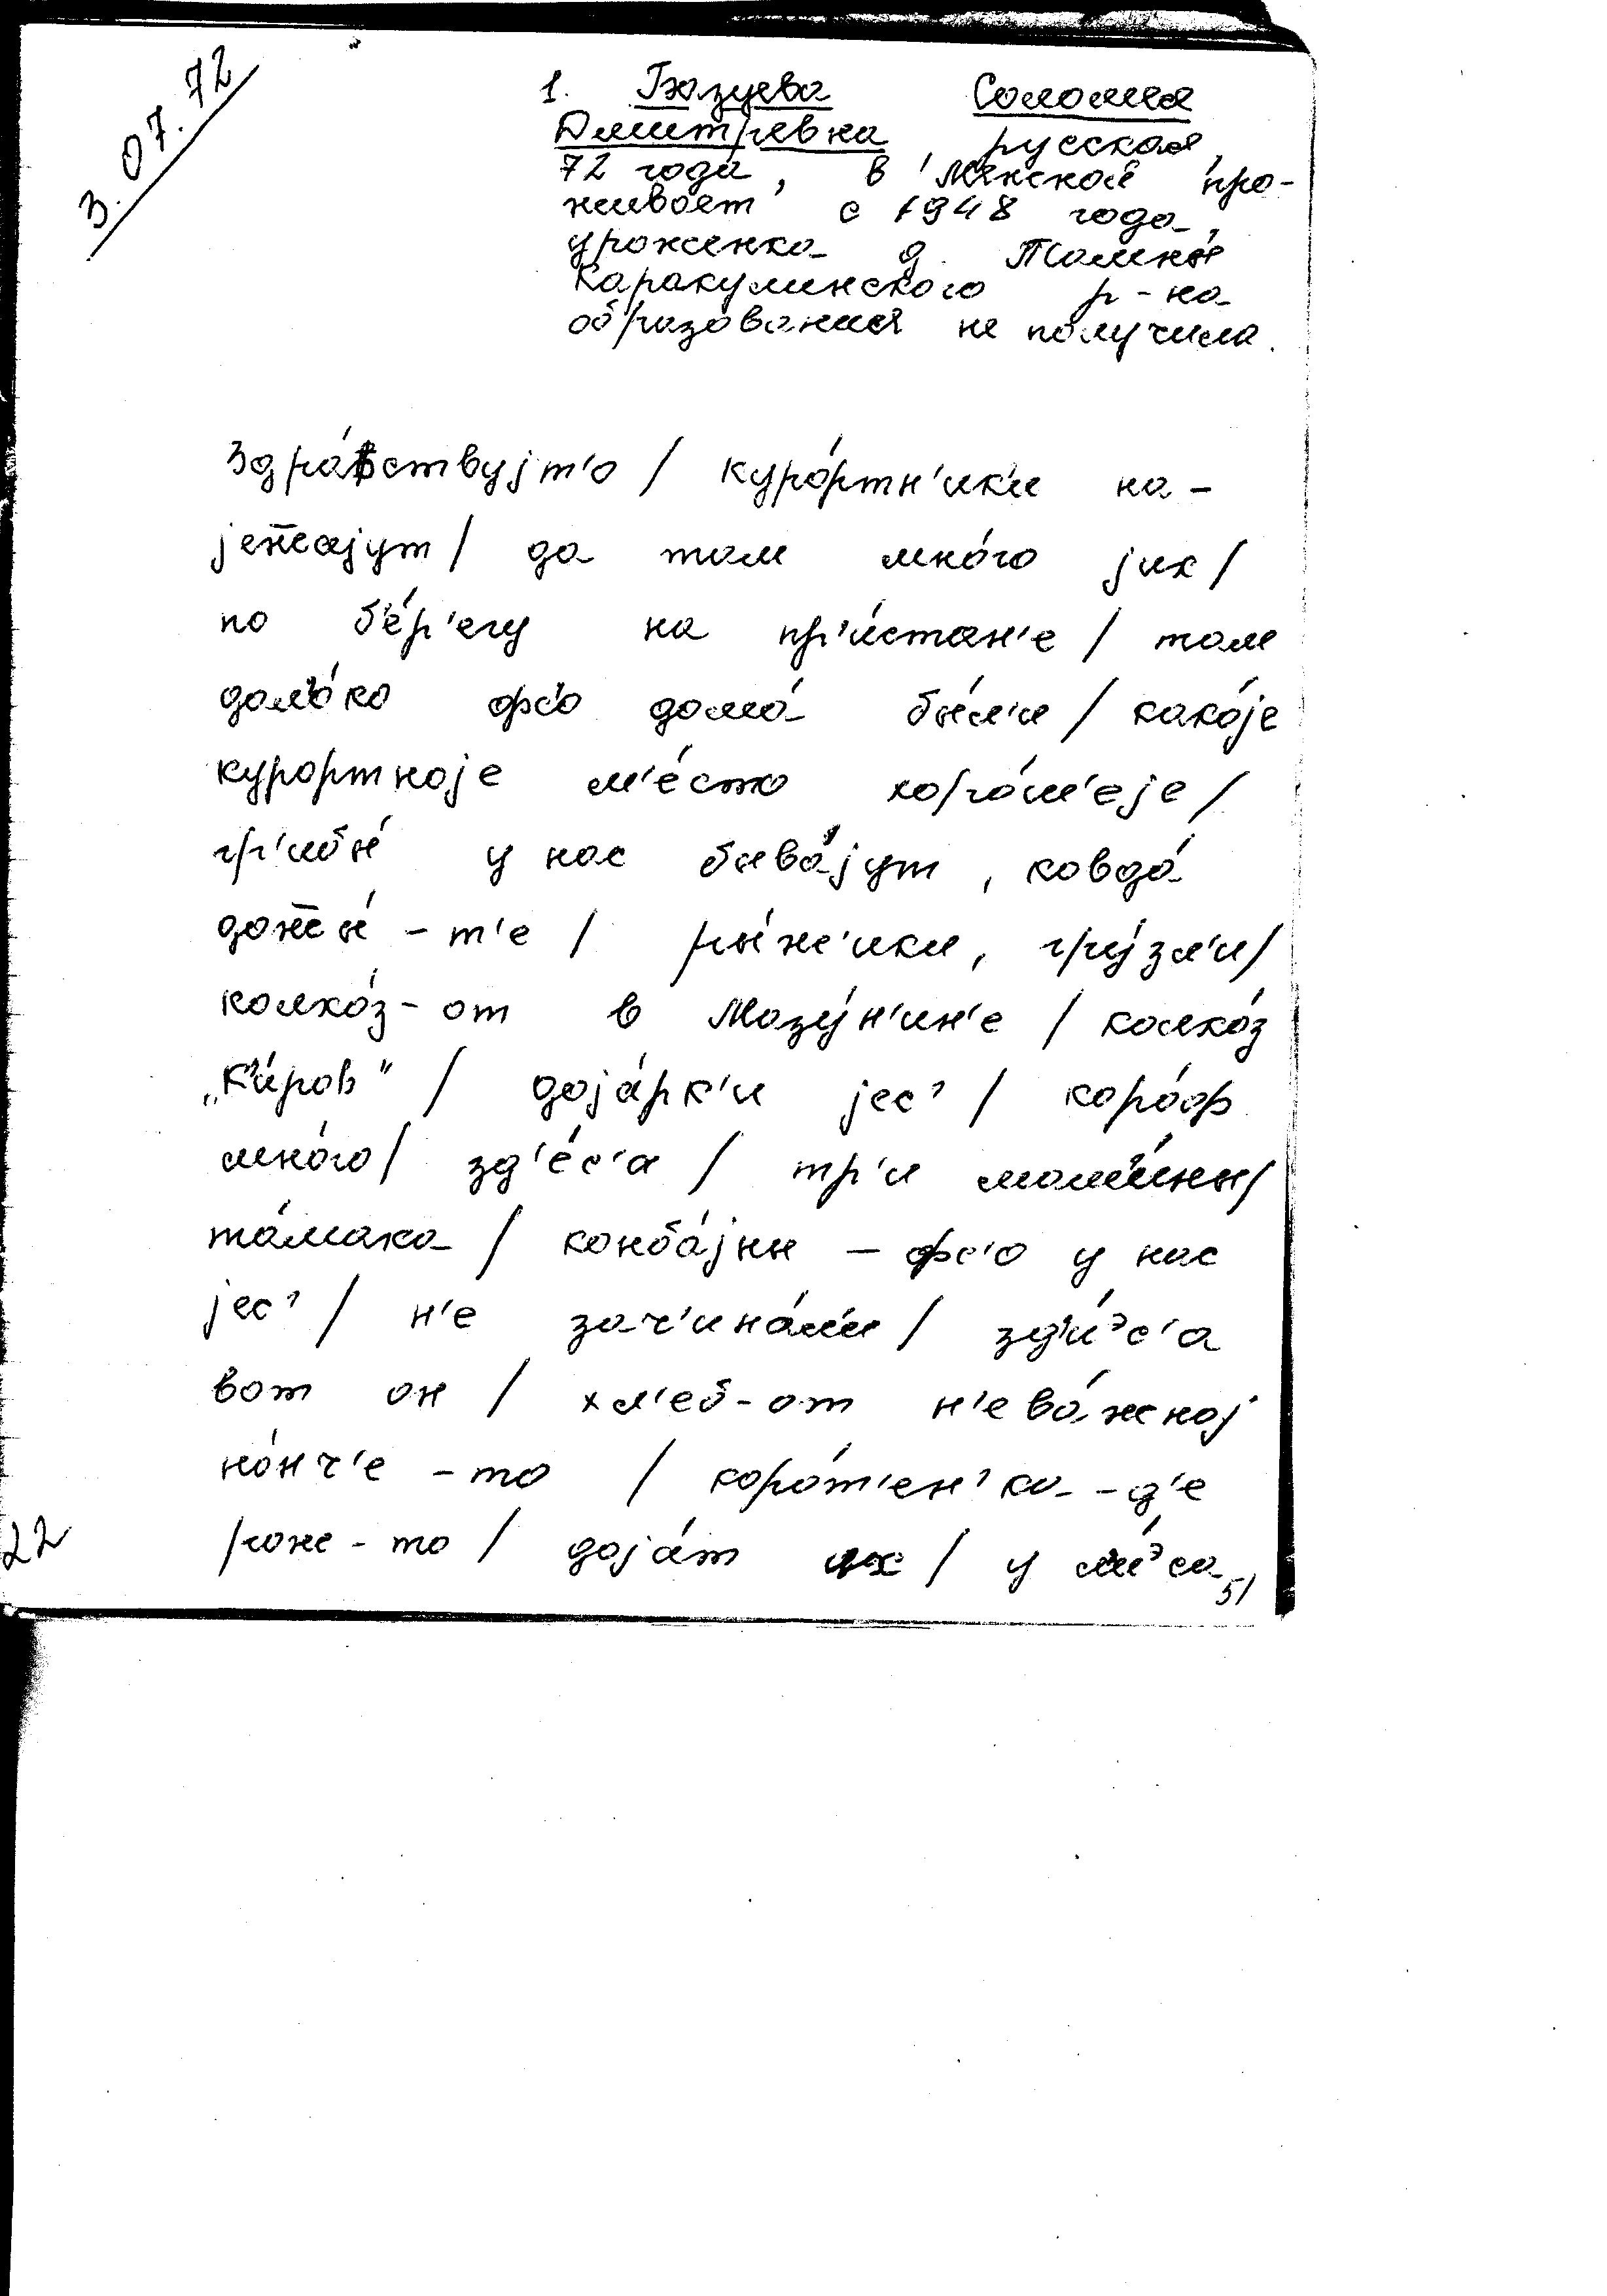 3.07.72
1. Бязуева Соломея
Дмитревна, русская,
72 года, в Мякской про-
живает с 1948 года,
уроженка д.
Каракулинского р-на
образования не получила.
Здра́вствуjт'о / куро́ртн'ик'и на-
jеж̅а́jут / да там мно́го jих /
по б'е́р'егу на пр'и́стан'е / там
дал'о́ко фс'о дома́ бы́л'и / како́jе
курортноjе м'е́сто хоро́ш'еjе /
гр'ибы́ у нас быва́jут, ковда́
дож̅ы́-т'е / ры́ж'ики, гру́зл'и /
колхо́з-от в Мазу́н'ин'е / колхо́з
„К'и́ров" / доjа́рк'и jес' / коро́ф
мно́го / зд'е́с'а / тр'и маш'и́ны /
та́мака / конба́jны – фс'о у нас
jес' / н'е зач'ина́л'и / зд'и́ᵉс'а
вот он / хл'еб-от н'ева́жноj
но́нч'е-то / коро́т'ен'ка-д'е
рож-то / доjа́т их / у л'и́ᵉса
22
51